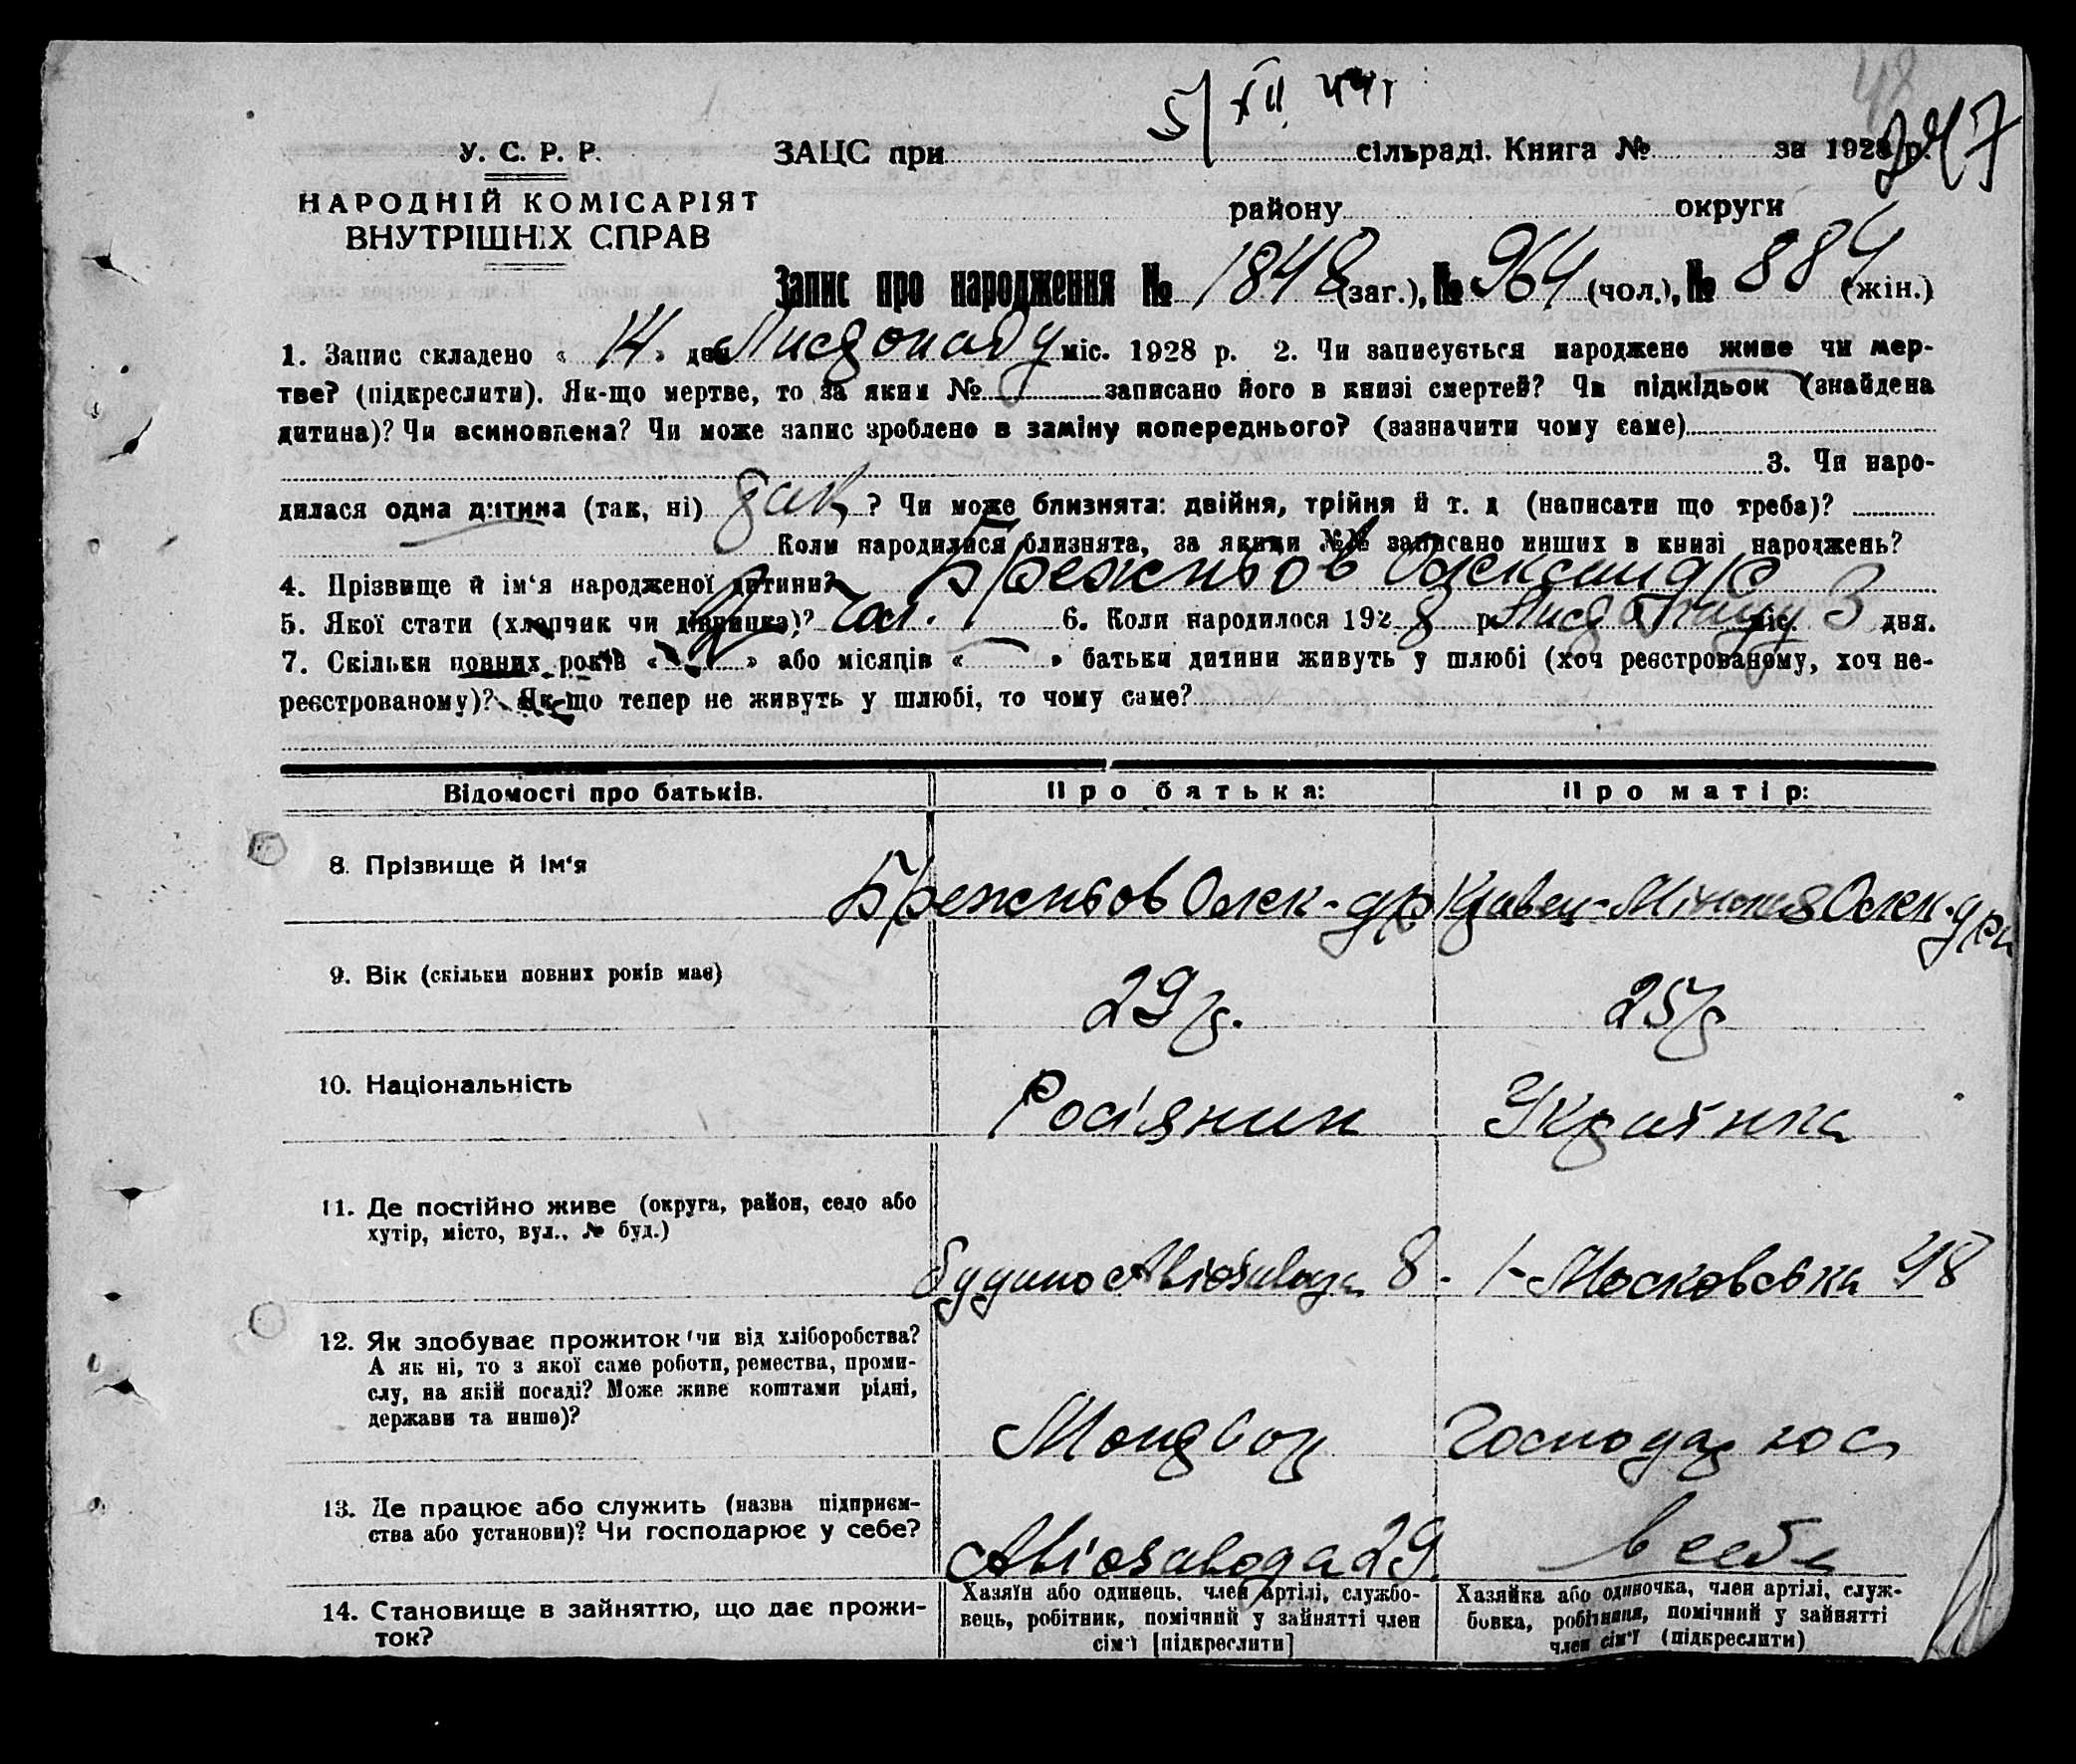 48
5/XII 44г
247
У. С. Р. Р. ЗАЦС при сільраді. Книга № за 1928 р.
НАРОДНІЙ КОМІСАРІЯТ району округи
ВНУТРІШНІХ СПРАВ
Запис про народження № 1848 (заг.), № 964 (чол.), № 884 (жін.)
1. Запис складено « 14 » дня Листопаду міс. 1928 р. 2. Чи записується народжене живе чи мер-
тве? (підкреслити). Як-що мертве, то за яким № записано його в книзі смертей? Чи підкідьок (знайдена
дитина)? Чи всиновлена? Чи може запис зроблено в заміну попереднього? (зазначити чому саме)
3. Чи наро-
дилася одна дитина (так, ні) так ? Чи може близнята: двійня, трійня й т. д (написати що треба)?
Коли народилися близнята, за якими №№ записано инших в книзі народжень?
4. Прізвище й ім‘я народженої дитини? Брежньов Олександр
5. Якої стати (хлопчик чи дівчинка)? Чол. 6. Коли народилося 1928 р. Листопаду міс. 3 дня.
7. Скільки повних років « » або місяців « » батьки дитини живуть у шлюбі (хоч реєстрованому, хоч не-
реєстрованому)? Як-що тепер не живуть у шлюбі, то чому саме?
Відомості про батьків. Про батька: Про матір:
8. Прізвище й ім‘я Брежньов Олек-др Кравец- Олек-дра
9. Вік (скільки повних років має) 29 р. 25 р
10. Національність Росіянин Українка
11. Де постійно живе (округа, район, село або
хутір, місто, вул., № буд.) Авіозавода 8. 1-Московська 48
12. Як здобуває прожиток (чи від хліборобства?
А як ні, то з якої саме роботи, ремества, проми-
слу, на якій посаді? Може живе коштами рідні,
держави та инше)?
13. Де працює або служить (назва підприєм-
ства або установи)? Чи господарює у себе? Авіозавода 29. в себе
14. Становище в зайняттю, що дає прожи-
ток?
Хазяїн або одинець, член артілі, службо-
вець, робітник, помічний у зайнятті член
сім‘ї [підкреслити]
Хазяйка або одиночка, член артілі, служ-
бовка, робітниця, помічний у зайнятті
член сім‘ї (підкреслити)